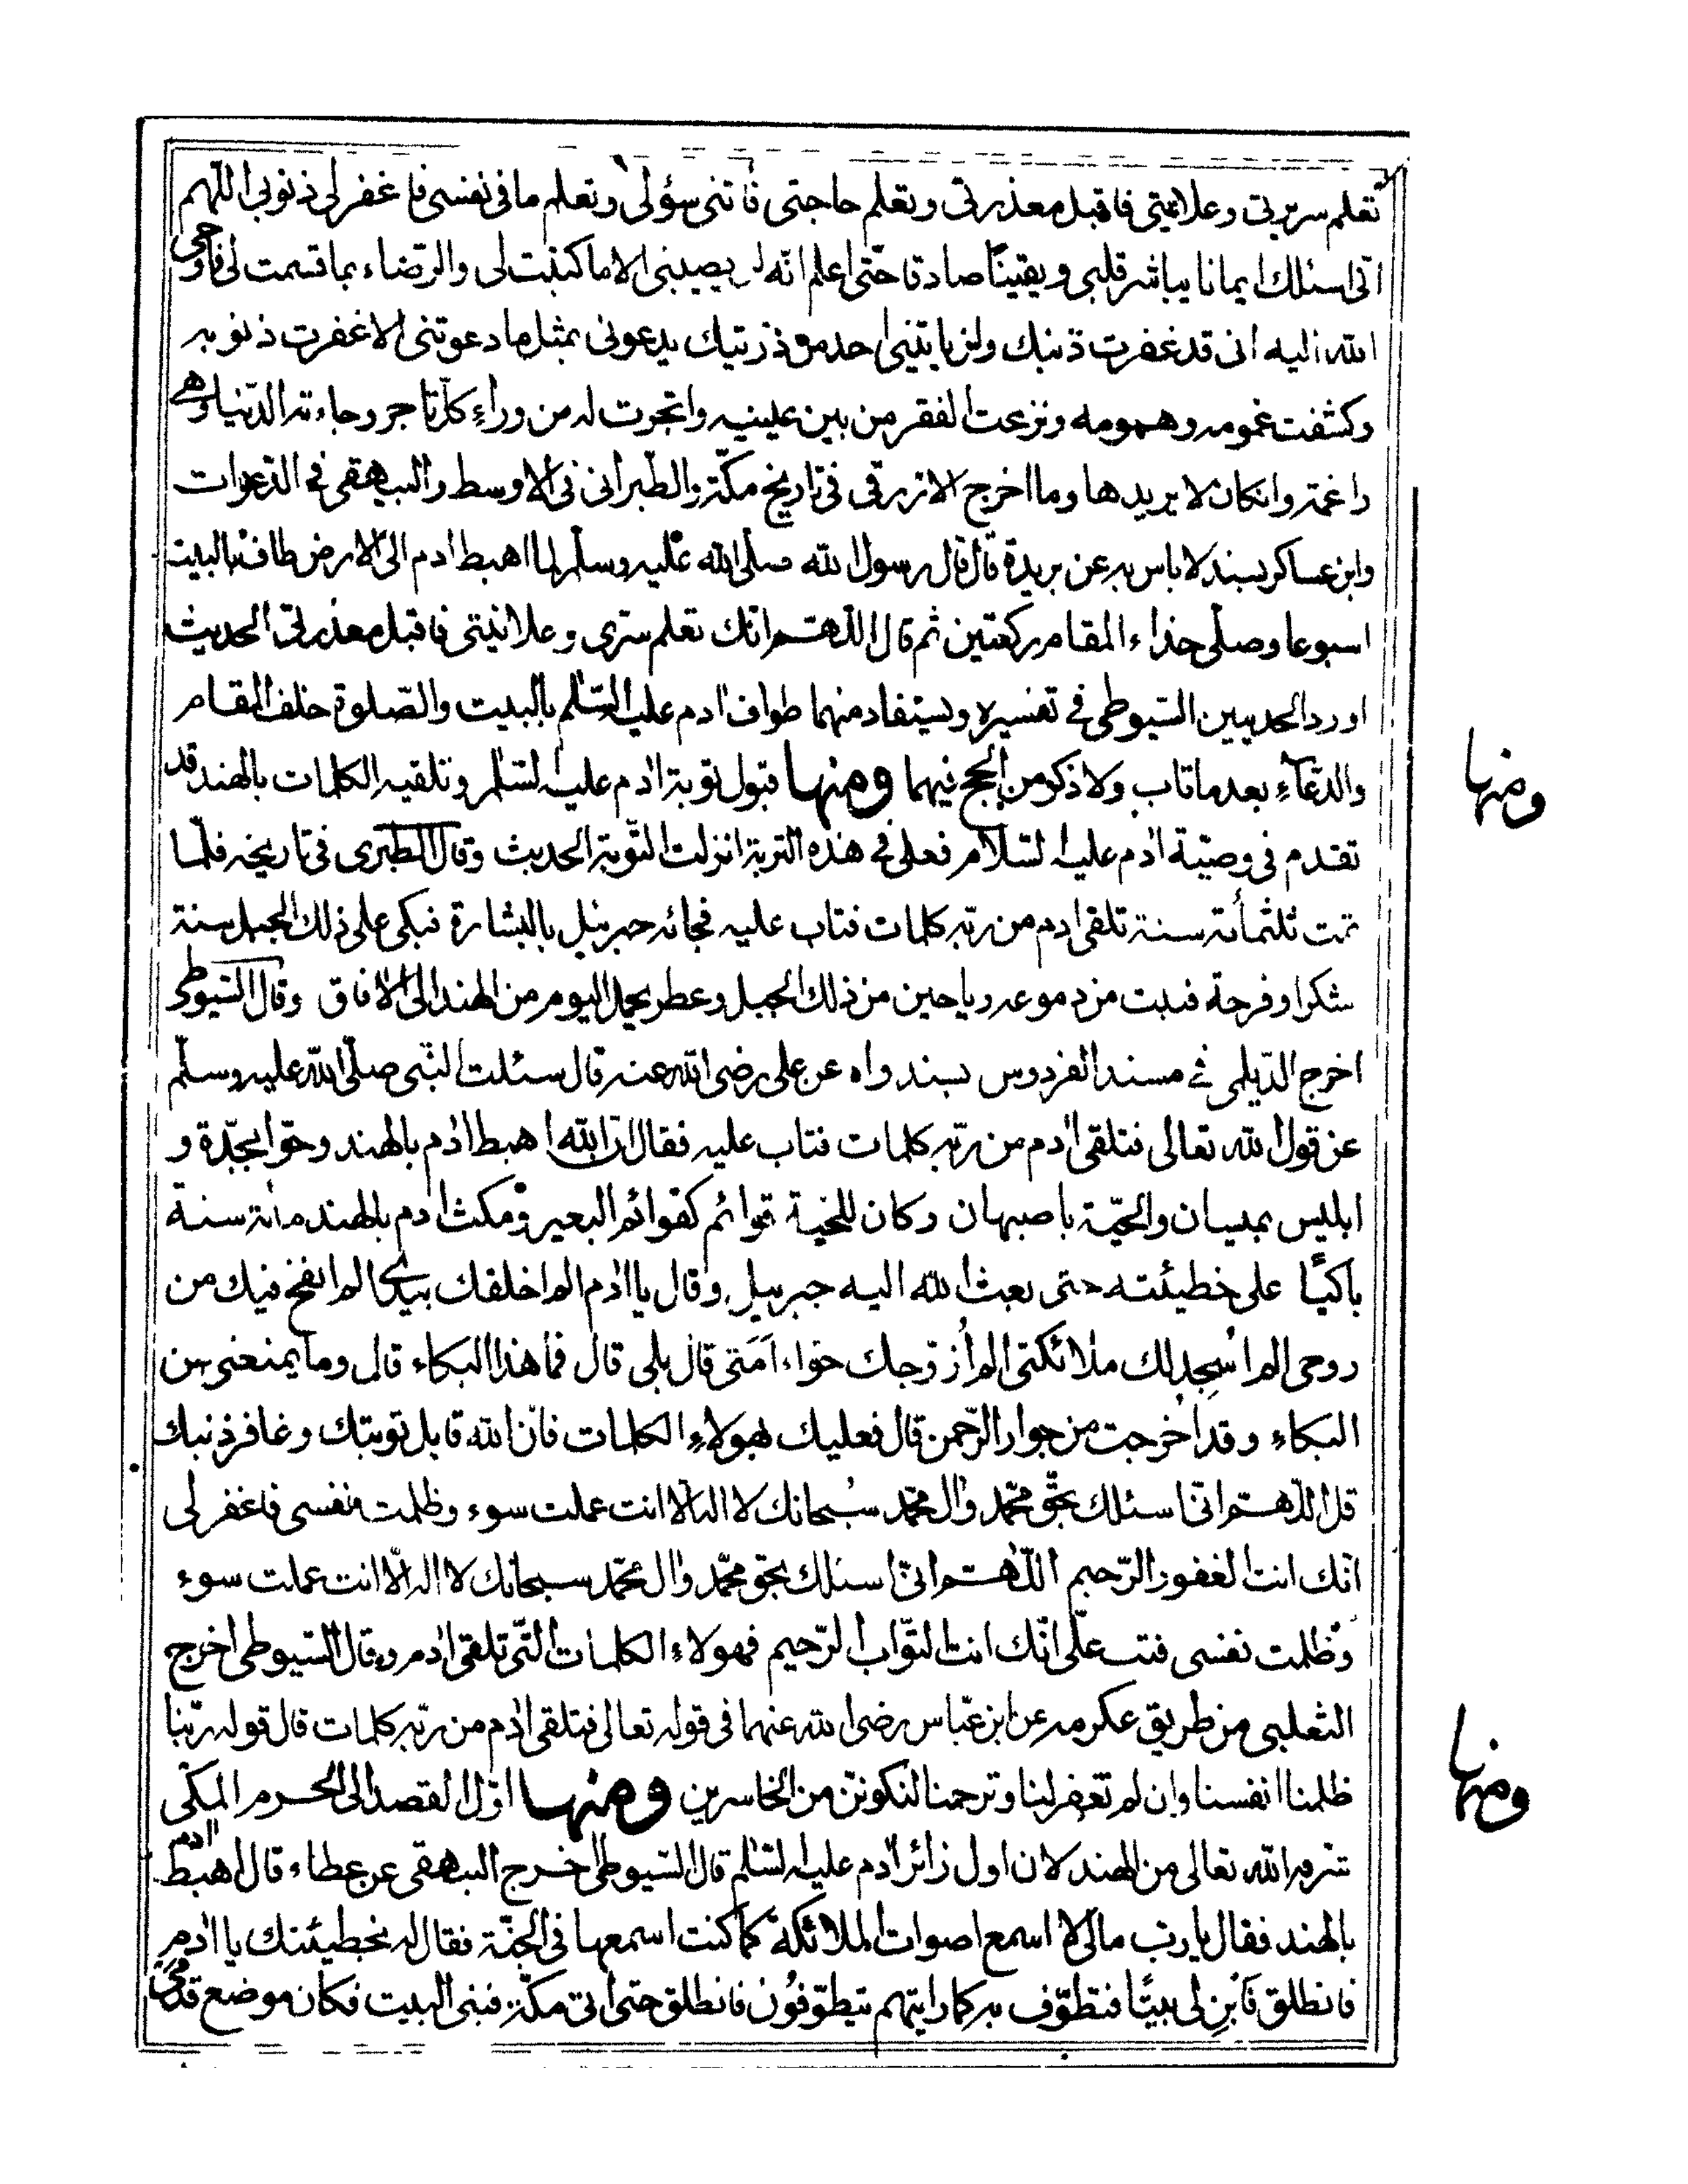 تعلم سريرتى وعلانيتى فاقبل معذرتى وتعلم حاجتى فاتنى سؤلى وتعلم مافى نفسى فاغفرلى ذنوبى اللهم
انى اسئلك ايمانا يباشر قلبى ويقينًا صادقا حتى اعلم انّه لن يصيبنى الا ماكتبت لى والرضاء بما قسمت لى فاوحى
الله اليه انى قد غفرت ذنبك ولن ياتينى احد من ذريتك يدعونى بمثل ما دعوتنى الا غفرت ذنوبه
وكشفت غمومه وهمومه ونزعت الفقر من بين عينيه واتجرت له من وراء كل تاجر وجاءته الدّنيا وهى
راغمة وانكان لا يريدها وما اخرج الازرقى فى تاريخ مكّة والطبرانى فى الاوسط والبيهقى فى الدّعوات
وابن عساكر بسند لا باس به عن بريدة قال قال رسول الله صلى الله عليه وسلم لما اهبط ادم الى الارض طاف بالبيت
اسبوعا وصلّى حذاء المقام ركعتين ثم قال اللّهم انّك تعلم سرّى وعلانيتى فاقبل معذرتى الحديث
اورد الحديثين السّيوطى فى تفسيره ويستفاد منهما طواف ادم عليه السّلم بالبيت والصّلوة خلف المقام
والدّعآء بعد ما تاب ولا ذكر من الحج فيهما ومنها قبول توبة ادم عليه السّلم وتلقيه الكلمات بالهند قد
تقدم فى وصيّة ادم عليه السّلام فعلى فى هذه التربة انزلت التّوبة الحديث وقال الطبرى فى تاريخه فلمّا
تمت ثلثمأته سنة تلقى ادم من ربّه كلمات فتاب عليه فجائه جبرئيل بالبشارة فبكى على ذلك الجبل سنة
شكرا وفرحة فنبت من دموعه رياحين من ذلك الجبل وعطر يحمل اليوم من الهند الى الافاق وقال السّيوطى
اخرج الدّيلمى فى مسند الفردوس بسند واه عن على رضى الله عنه قال سئلت النّبى صلّى الله عليه وسلّم
عن قول الله تعالى فتلقى ادم من ربّه كلمات فتاب عليه فقال انّ الله اهبط ادم بالهند وحوّا بجدّة و
ابليس بميسان والحيّة باصبهان وكان للحية قوائم كقوائم البعير ومكث ادم بالهند مائة سنة
باكيًا على خطيئته حتى بعث الله اليه جبرييل وقال يا ادم الم اخلقك بيدى الم انفخ فيك من
روحى الم اُسجد لك ملائكتى الم اُزوّجك حوّاء اَمَتى قال بلى قال فما هذا البكاء قال وما يمنعنى من
البكاء وقد اُخرجت من جوار الرّحمن قال فعليك بهولاء الكلمات فانّ الله قابل توبتك وغافر ذنبك
قل اللّهم انّى اسئلك بحّق محّمد وال محّمد سُبحانك لا اله الا انت عملت سوء وظلمت نفسى فاغفر لى
انّك انت الغفور الرّحيم اللّهم انّى اسئلك بحّق محّمد وال محّمد سبحانك لا اله الّا انت عملت سوء
وظلمت نفسى فتب علّى انّك انت التّوّاب الرّحيم فهولاء الكلمات الّتى تلقى ادم وقال السّيوطى اخرج
الثعلبى من طريق عكرمه عن ابن عبّاس رضى الله عنهما فى قوله تعالى فتلقى ادم من ربّه كلمات قال قوله ربّنا
ظلمنا انفسنا وان لم تغفر لنا وترحمنا لنكونن من الخاسرين ومنها اوّل القصد الى الحرم المكّى
شرفه الله تعالى من الهند لان اول زائر ادم عليه السّلم قال السّيوطى اخرج البيهقى عن عطاء قال اهبط ادم
بالهند فقال يا رب مالى لا اسمع اصوات الملائكة كما كنت اسمعها فى الجنّة فقال له بخطيئتك يا ادم
فانطلق فَابْنِ لى بيتًا فتطوّف به كما رايتهم يتطوّفون فانطلق حتى اتى مكّة فبنى البيت فكان موضع قدمى
ومنها
ومنها